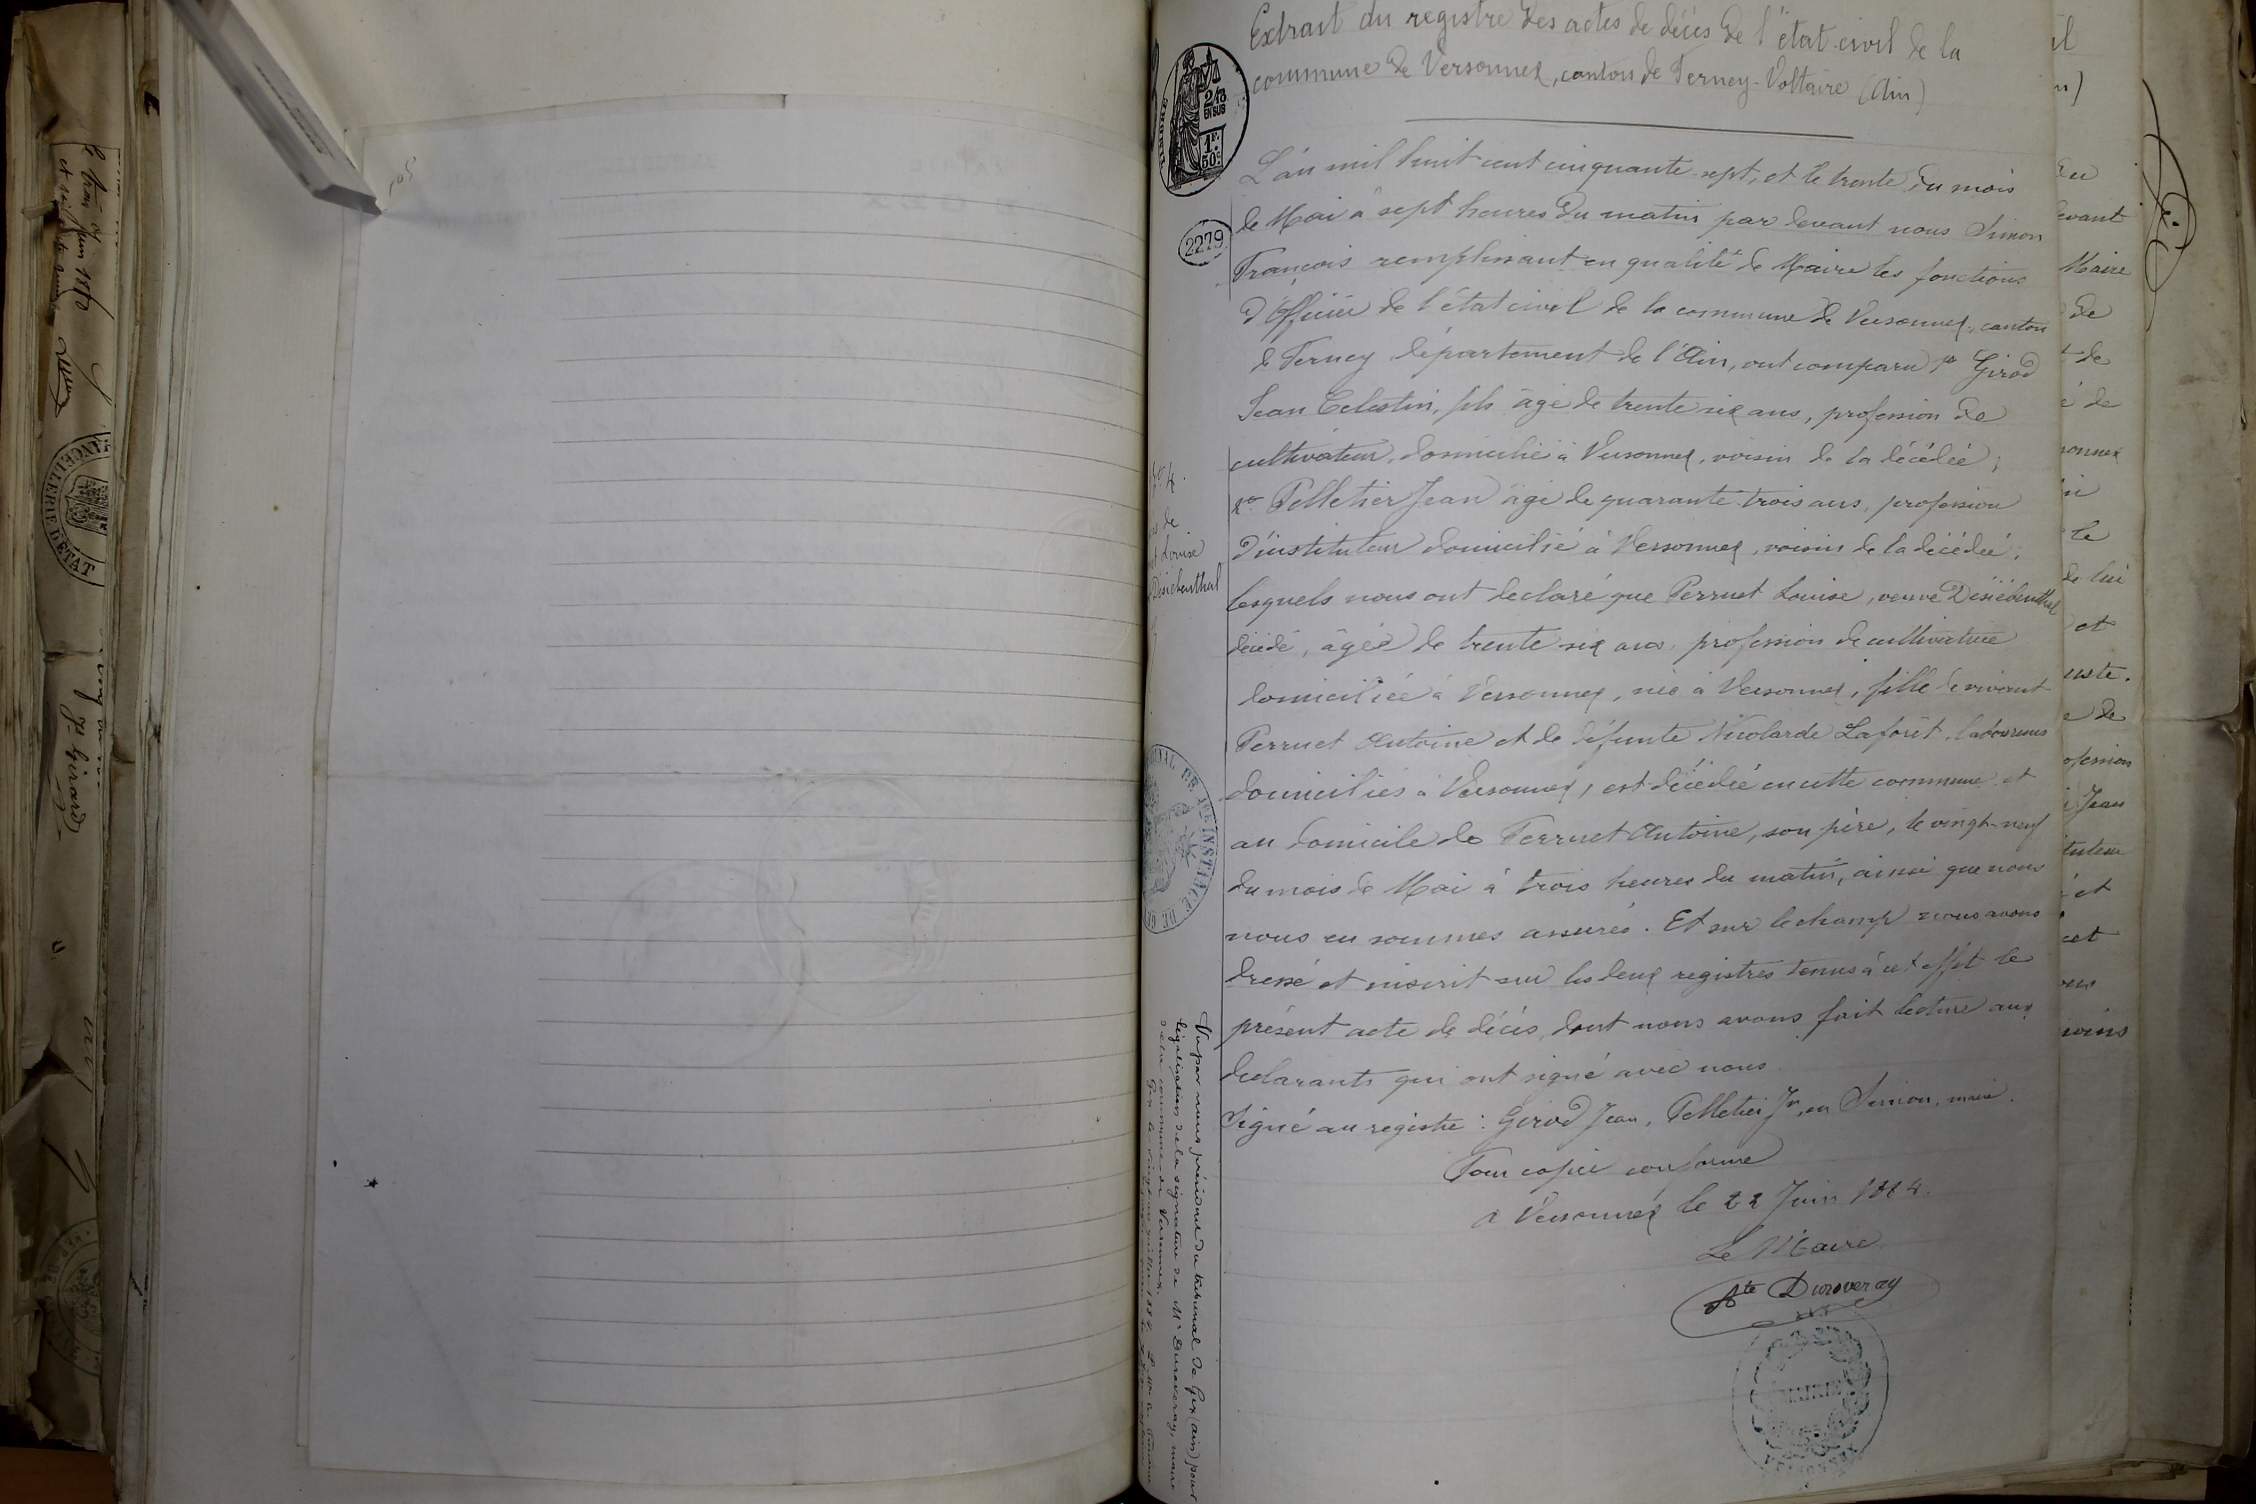 Le trois Juin 1870
CHANCELLERIE D'ÉTAT
Jn Girard
Extrait du registre des actes de décès de l'état civil de la
commune de Versonnex, canton de Ferney-Voltaire (Ain)
2/10
EN SUS
1F.
50c
2279
L'an mil huit cent cinquante-sept, et le trente du mois
de Mai à sept heures du matin par devant nous Simon
François remplissant en qualité de Maire les fonctions
d'Officier de l'état civil de la commune de Versonnex, canton
de Ferney département de l'Ain, ont comparu 1o Girod
Jean Celestin, fils âgé de trente six ans, profession de
cultivateur, domicilié à Versonnex, voisin de la décédée ;
2o Pelletier Jean âgé de quarante-trois ans, profession
d'instituteur domicilié à Versonnex, voisin de la décédée ;
lesquels nous ont déclaré que Perruet Louise, veuve Désiébenthal
décédé, âgée de trente-six ans, profession de cultivatrice
domiciliée à Versonnex, née à Versonnex, fille de vivant
Perruet Antoine et de défunte Nicolarde Laforêt, laboureurs
domiciliés à Versonnex, est décédée en cette commune et
au domicile de Perruet Antoine, son père, le vingt-neuf
du mois de Mai à trois heures du matin, ainsi que nous
nous en sommes assurés. Et sur le champ nous avons
dressé et inscrit sur les deux registres tenus à cet effet le
présent acte de décès, dont nous avons fait lecture aux
déclarants qui ont signé avec nous
Signé au registre : Girod Jean, Pelletier Jn, Simon, maire.
Pour copie conforme
à Versonnex le 22 Juin 1884.
Le Maire
Ate Duraveray
MAIRIE
VERSONNEX
No 4.
de
Louise
Désiebenthal
TRIBUNAL DE 1RE INSTANCE
DE GEX
Vu par nous président du tribunal de Gex (ain) pour
légalisation de la signature de Mr Duraveray, maire
de la commune de Versonnex.
Maire